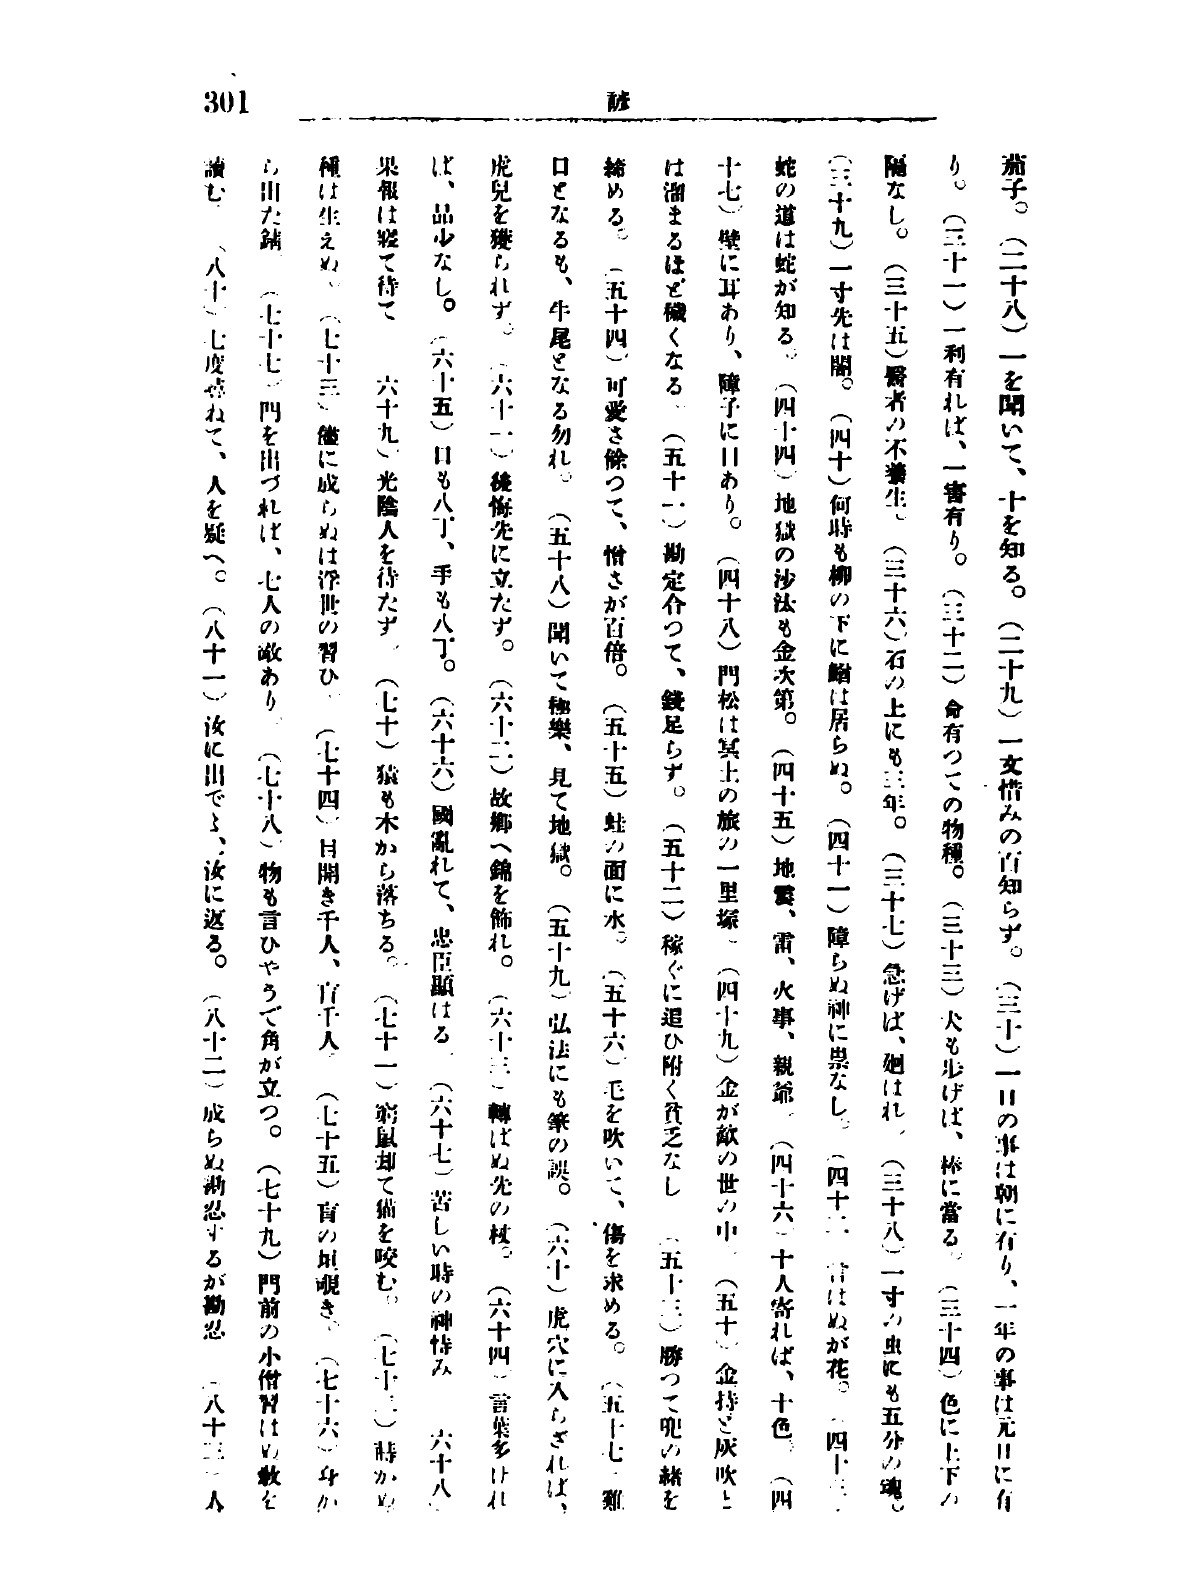 諺
301
茄子。(二十八)一を聞いて、十を知る。(二十九)一文惜みの百知らず。(三十)一日の事は朝に有り、一年の事は元日に有
り。(三十一)一利有れば、一害有り。(三十二)命有つての物種。(三十三)犬も歩げば、棒に當る。(三十四)色に上下の
隔なし。(三十五)醫者の不養生。(三十六)石の上にも三年。(三十七)急げば、廻はれ。(三十八)一寸の虫にも五分の魂。
(三十九)一寸先は闇。(四十)何時も柳の下に鰌は居らぬ。(四十一)障らぬ神に祟なし。(四十二)言はぬが花。(四十三)
蛇の道は蛇が知る。(四十四)地獄の沙汰も金次第。(四十五)地震、雷、火事、親爺。(四十六)十人寄れば、十色。(四
十七)壁に耳あり、障子に目あり。(四十八)門松は冥土の旅の一里塚。(四十九)金が敵の世の中。(五十)金持と灰吹と
は溜まるほど穢くなる。(五十一)勘定合つて、錢足らず。(五十二)稼ぐに追ひ附く貧乏なし。(五十三)勝つて兜の緒を
締める。(五十四)可愛さ餘つて、憎さが百倍。(五十五)蛙の面に水。(五十六)毛を吹いて、傷を求める。(五十七)雞
口となるも、牛尾となる勿れ。(五十八)聞いて極樂、見て地獄。(五十九)弘法にも筆の誤。(六十)虎穴に入らざれば、
虎兒を獲られず。(六十一)後悔先に立たず。(六十二)故鄕へ錦を飾れ。(六十三)轉ばぬ先の杖。(六十四)言葉多けれ
ば、品少なし。(六十五)口も八丁、手も八丁。(六十六)國亂れて、忠臣顯はる。(六十七)苦しい時の神恃み。(六十八)
果報は寢て待て。(六十九)光陰人を待たず。(七十)猿も木から落ちる。(七十一)窮鼠却て猫を咬む。(七十二)蒔かぬ
種は生えぬ。(七十三)儘に成らぬは浮世の習ひ。(七十四)目開き千人、盲千人。(七十五)盲の垣覗き。(七十六)身か
ら出た錆。(七十七)門を出づれば、七人の敵あり。(七十八)物も言ひやうで角が立つ。(七十九)門前の小僧習はぬ敎を
讀む。(八十)七度尋ねて、人を疑へ。(八十一)汝に出でゝ、汝に返る。(八十二)成らぬ勘忍するが勘忍。(八十三)人